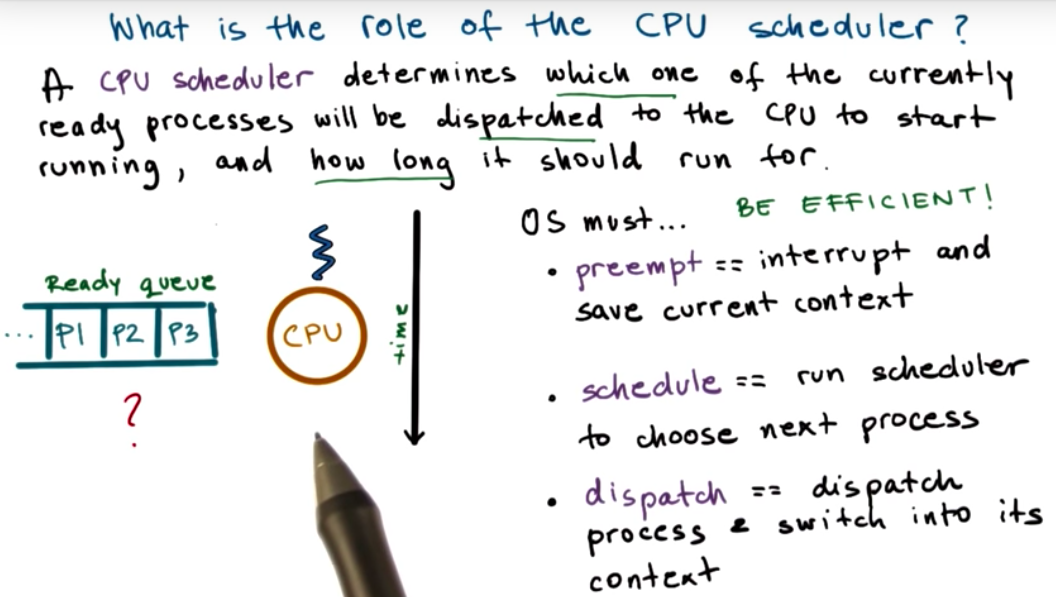 What is the role of the CPU scheduler?
A CPU scheduler determines which one of the currently
ready processes will be dispatched to the CPU to start
running, and how long it should run for.
OS must... BE EFFICIENT!
• preempt == interrupt and
save current context
Ready queue
... P1 P2 P3
CPU
time
?
• schedule == run scheduler
to choose next process
• dispatch == dispatch
process & switch into its
context